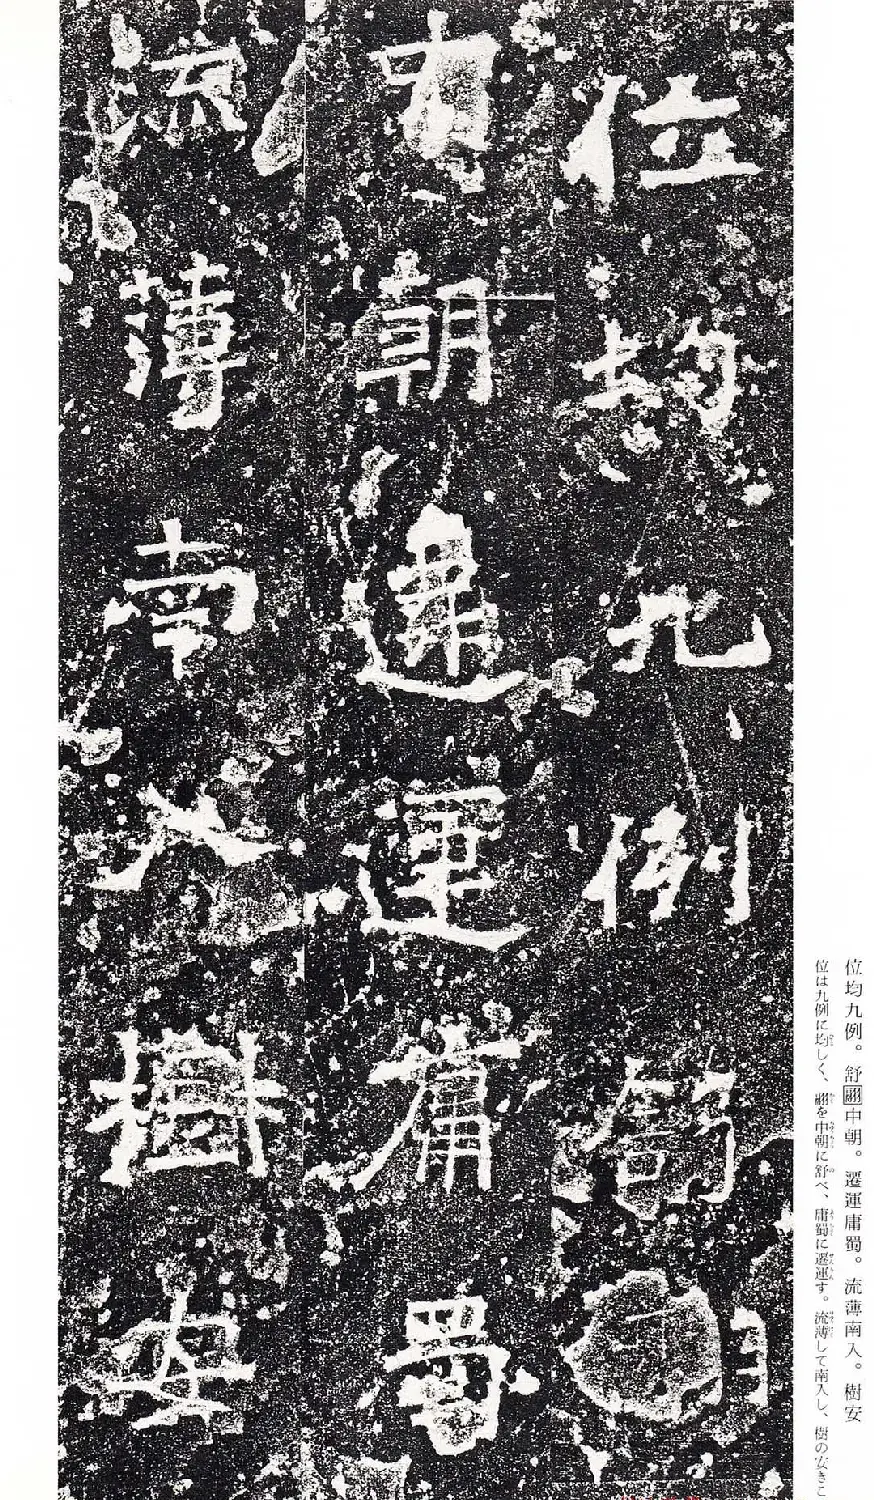 位均九例。舒翮中朝。遷運庸蜀。流薄南入。樹安
位は九例に均しく、翮を中朝に舒べ、庸蜀に遷運す。流薄して南入し、樹の安きこ
位均九例舒
中朝遷運庸蜀
流薄南入樹安